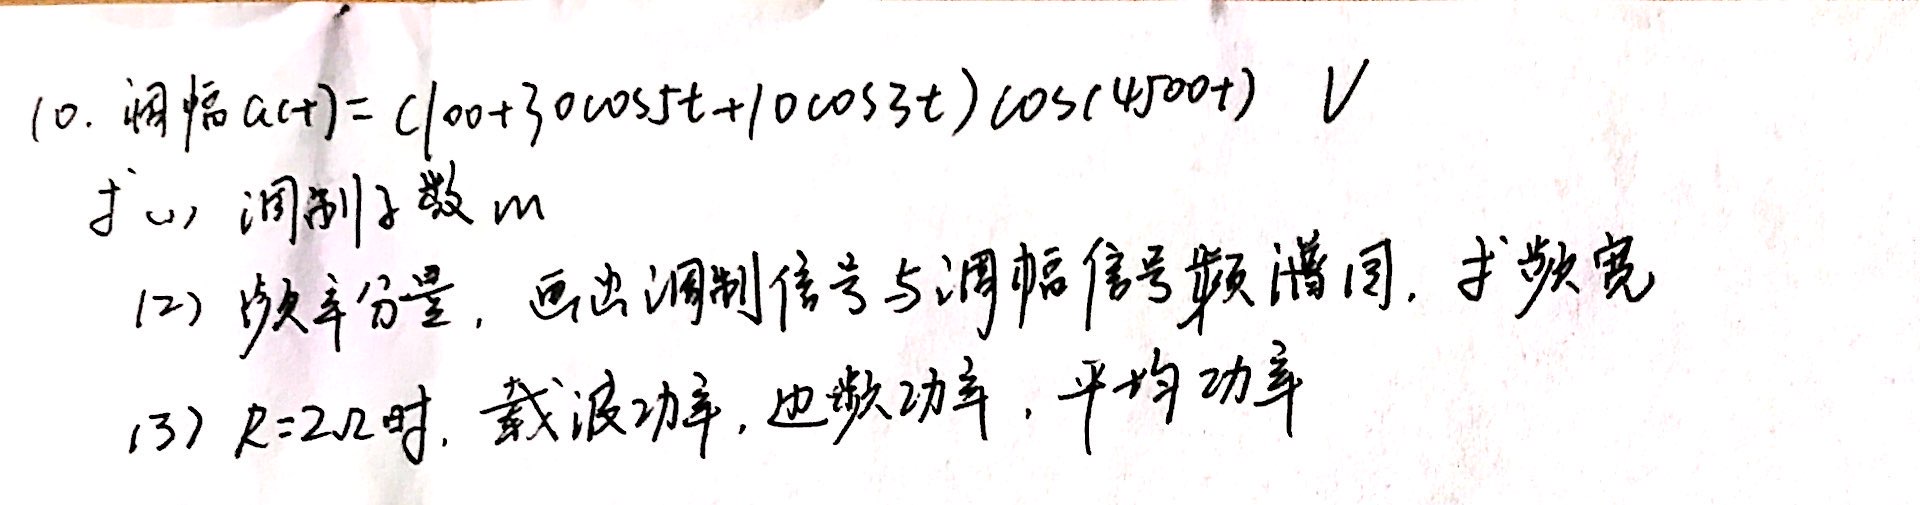 10. 调幅 a(t) = (100+30cos5t+10cos3t) cos(4500t) V
求 (1) 调制子数 m
(2) 频率分量, 画出调制信号与调幅信号频谱图, 求频宽
(3) R=2Ω时, 载波功率, 边频功率, 平均功率